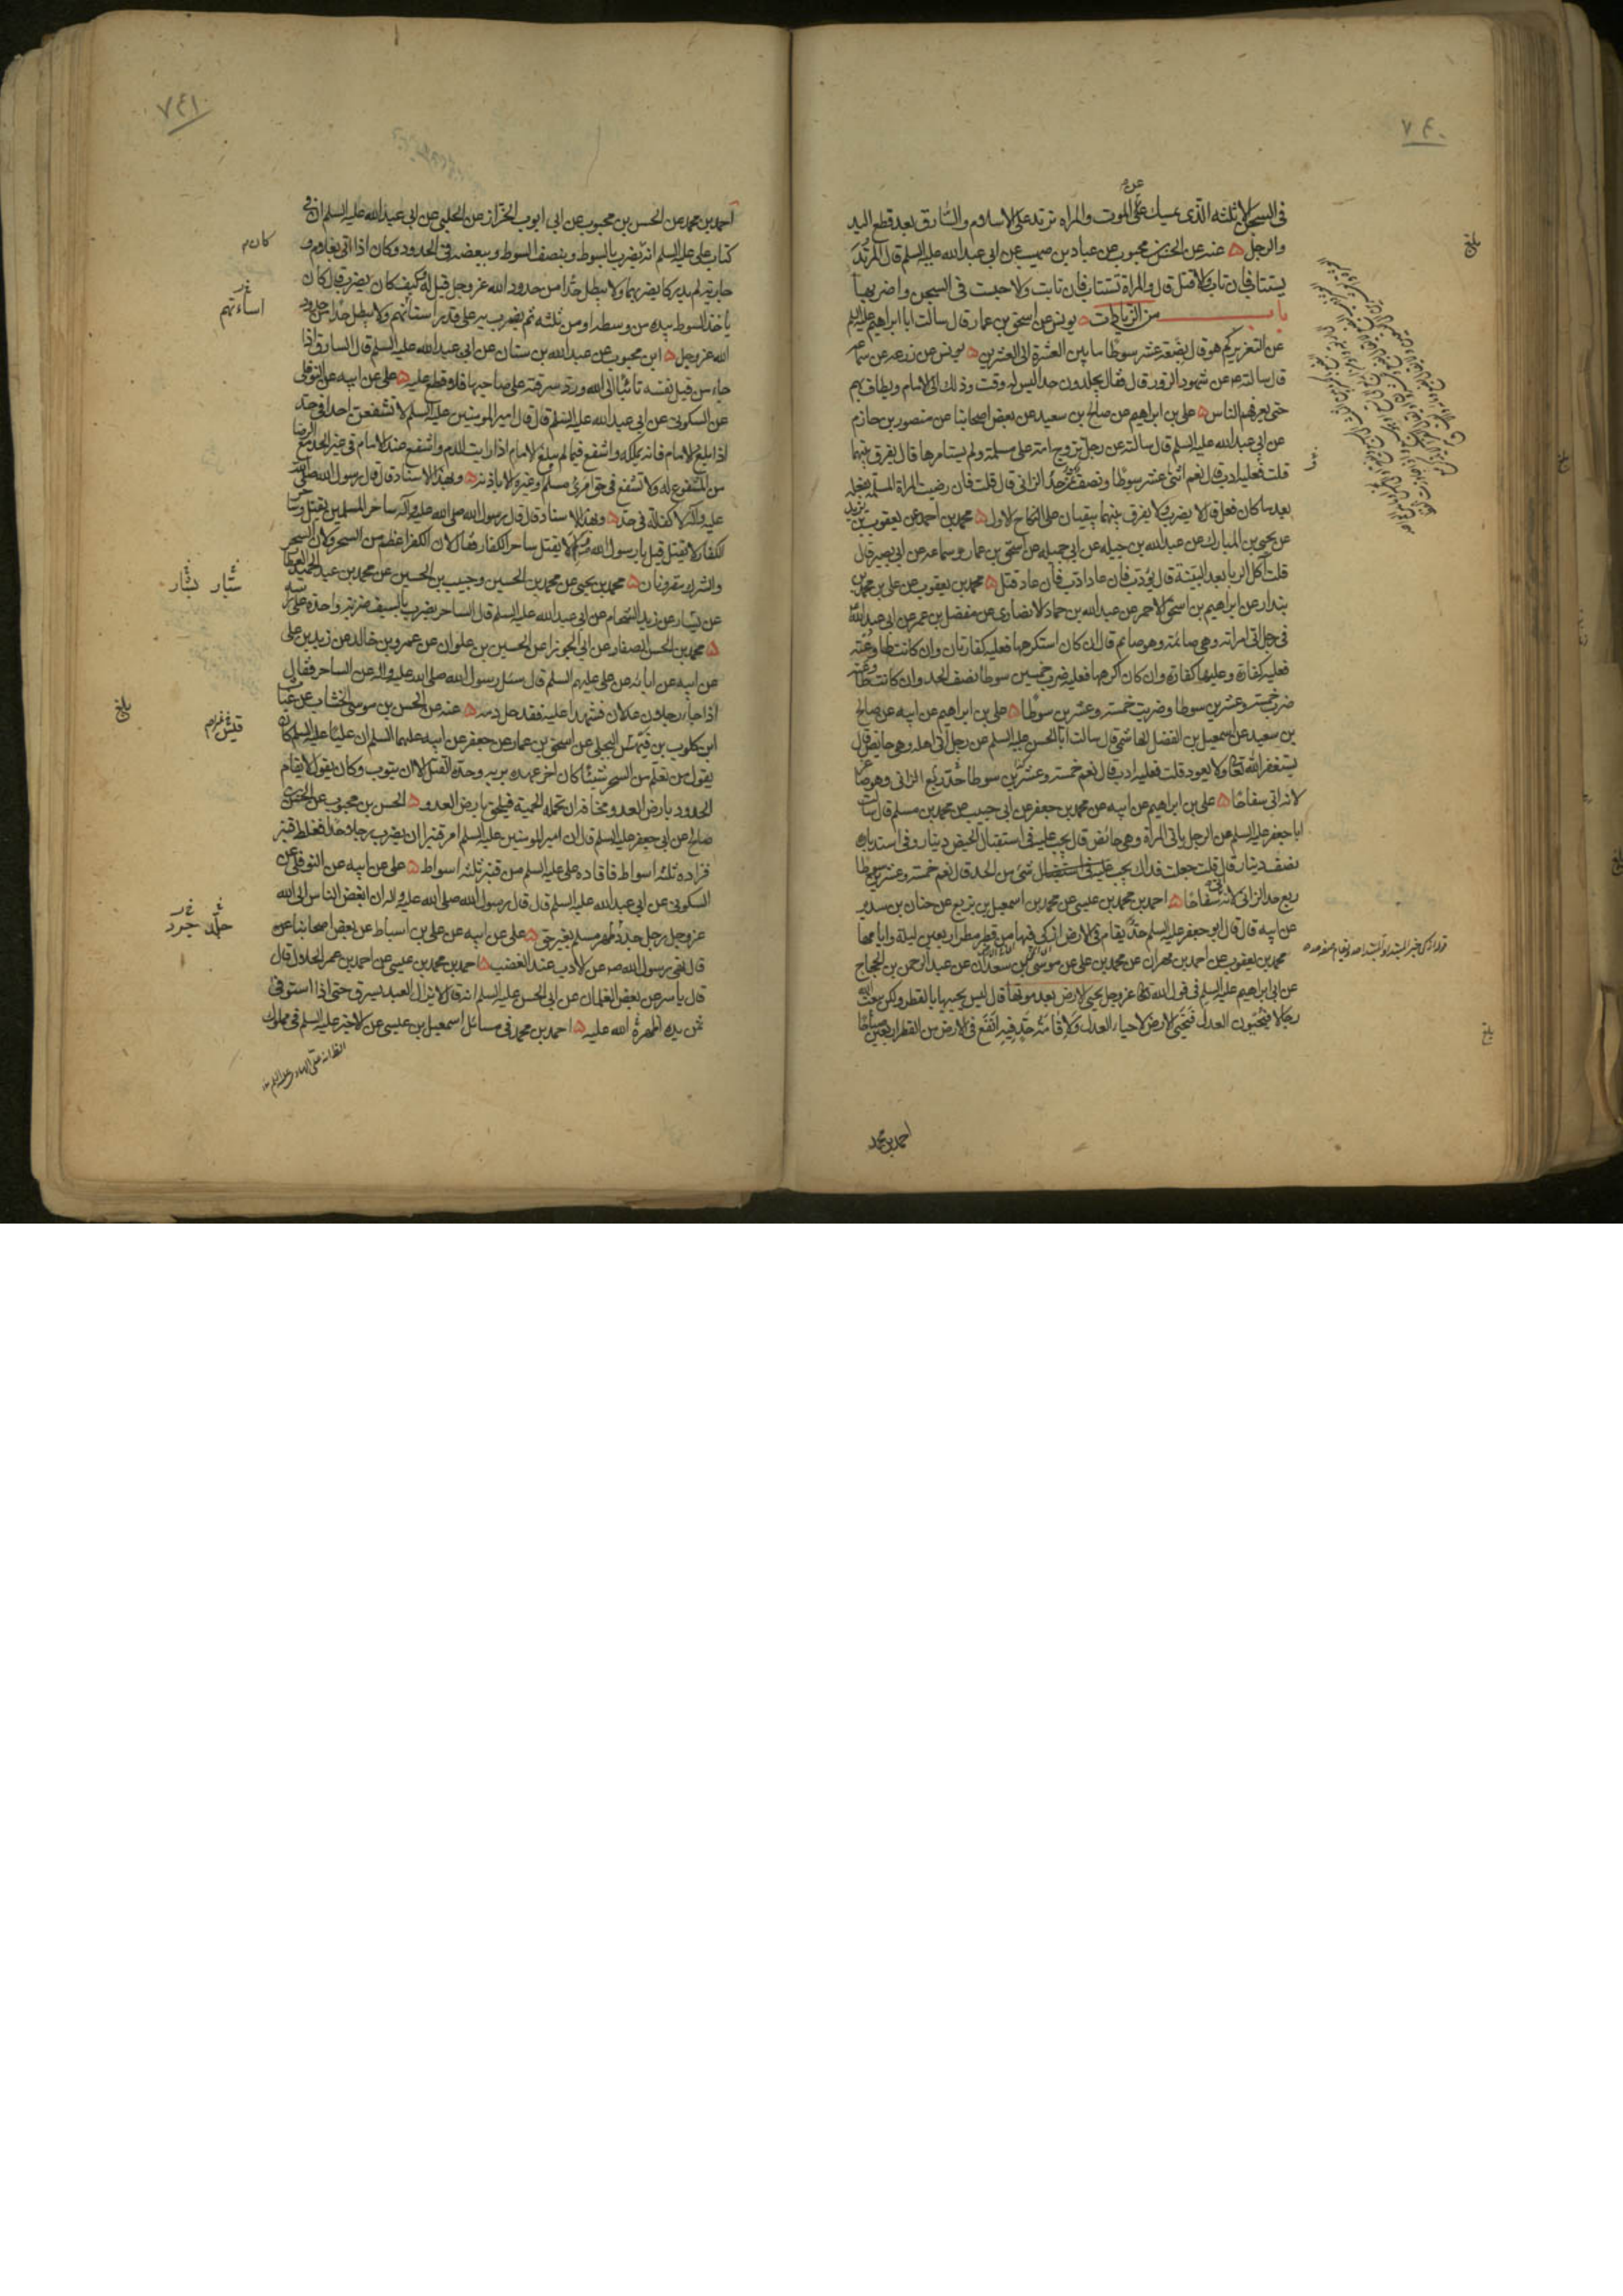 ٧٤٠
في السجن الا ثلثة الذي يمسك على الموت والمراة ترتد على الاسلام والسارق بعد قطع اليد
والرجل ه عنه عن الحسن بن محبوب عن عباد بن صهيب عن ابي عبد الله عليه السلم قال المرتد
يستتاب فان تاب والا قتل قال والمراة تستتاب فان تابت والا حبست في السجن واضر بها
باب من الزيادات ه يونس عن اسحق بن عمار قال سالت ابا ابراهيم عليه السلم
عن التعزير كم هو قال بضعة عشر سوطا ما بين العشرة الى العشرين ه يونس عن زرعه عن سماعه
قال سالته عن شهود الزور قال فقال يجلدون حدا ليس له وقت وذلك الى الامام ويطاف بهم
حتى يعرفهم الناس ه علي بن ابراهيم عن صالح بن سعيد عن بعض اصحابنا عن منصور بن حازم
عن ابي عبد الله عليه السلم قال سالته عن رجل تزوج امة على مسلمة ولم يستامرها قال يفرق بينهما
قلت فعليه ادب قال نعم اثنى عشر سوطا ونصف ثمن حد الزاني قال قلت فان رضيت المراة المسلمة بفعله
بعد ما كان فعل قال لا يضرب ولا يفرق بينهما يبقيان على النكاح الاول ه محمد بن احمد عن يعقوب بن يزيد
عن يحيى بن المبارك عن عبد الله بن جبله عن ابي جميله عن اسحق بن عمار وسماعه عن ابي بصير قال
قلت آكل الربا بعد البينة قال يؤدب فان عاد ادب فان عاد قتل ه محمد بن يعقوب عن علي بن محمد بن
بندار عن ابراهيم بن اسحق الاحمر عن عبد الله بن حماد الانصاري عن مفضل بن عمر عن ابي عبد الله
في رجل اتى امراته وهي صائمة وهو صائم قال ان كان استكرهها فعليه كفارتان وان كانت طاوعته
فعليه كفارة وعليها كفارة وان كان اكرهها فعليه ضرب خمسين سوطا نصف الحد وان كانت طاوعته
ضرب خمسة وعشرين سوطا وضربت خمسة وعشرين سوطا ه علي بن ابراهيم عن ابيه عن صالح
بن سعيد عن اسمعيل بن الفضل الهاشمي قال سالت ابا الحسن عليه السلم عن رجل اتى اهله وهي حائض قال
يستغفر الله تعالى ولا يعود قلت فعليه ادب قال نعم خمسة وعشرين سوطا حد ربع الزاني وهو صاغر
لانه اتى سفاحا ه علي بن ابراهيم عن ابيه عن محمد بن جعفر عن ابي حبيب عن محمد بن مسلم قال سالت
ابا جعفر عليه السلم عن الرجل ياتي المراة وهي حائض قال يجب عليه في استقبال الحيض دينار وفي استدباره
نصف دينار قال قلت جعلت فداك يجب عليه شئ من الحد قال نعم خمسة وعشرين سوطا
ربع حد الزاني لانه اتى سفاحا ه احمد بن محمد بن عيسى عن محمد بن اسمعيل بن بزيع عن حنان بن سدير
عن ابيه قال قال ابو جعفر عليه السلم حد يقام في الارض ازكى فيها من قطر مطر اربعين ليلة وايامها
محمد بن يعقوب عن احمد بن مهران عن محمد بن علي عن موسى بن سعدان عن عبد الرحمن بن الحجاج
عن ابي ابراهيم عليه السلم في قول الله تعالى عز وجل يحيي الارض بعد موتها قال ليس يحييها بالقطر ولكن يبعث الله
رجالا فيحيون العدل فتحيى الارض لاحياء العدل ولاقامة حد فيه انفع في الارض من القطر اربعين صباحا
احمد بن محمد
بلغ
بلغ
٧٤١
احمد بن محمد عن الحسن بن محبوب عن ابي ايوب الخزاز عن الحلبي عن ابي عبد الله عليه السلم ان في
كتاب علي عليه السلم انه يضرب بالسوط وبنصف السوط وببعضه في الحدود وكان اذا اتى بغلام و
جارية لم يدركا يضربهما ولا يبطل حدا من حدود الله عز وجل قيل له كيف كان يضرب قال كان
ياخذ السوط بيده من وسطه او من ثلثه ثم يضرب به على قدر اسنانهم ولا يبطل حدا من حدود
الله عز وجل ه ابن محبوب عن عبد الله بن سنان عن ابي عبد الله عليه السلم قال السارق اذا
جاء من قبل نفسه تائبا الى الله ورد سرقته على صاحبها فلا قطع عليه ه علي عن ابيه عن النوفلي
عن السكوني عن ابي عبد الله عليه السلم قال قال امير المومنين عليه السلم لا تشفعن احدا في حد
اذا بلغ الامام فانه يملكه واشفع فيما لم يبلغ الامام اذا رايت الندم واشفع عند الامام في غير الحد مع الرضا
من المشفوع له ولا تشفع في حق امرئ مسلم وغيره الا باذنه ه وبهذا الاسناد قال قال رسول الله صلى الله
عليه وآله لا كفالة في حد ه وبهذا الاسناد قال قال رسول الله صلى الله عليه وآله ساحر المسلمين يقتل وساحر
الكفار لا يقتل قيل يا رسول الله لم لا يقتل ساحر الكفار فقال لان الكفر اعظم من السحر ولان السحر
والشرك مقرونان ه محمد بن يحيى عن محمد بن الحسين وحبيب بن الحسين عن محمد بن عبد الحميد العطار
عن بشار عن زيد الشحام عن ابي عبد الله عليه السلم قال الساحر يضرب بالسيف ضربة واحدة على راسه
ه محمد بن الحسن الصفار عن ابي الجوزا عن الحسين بن علوان عن عمرو بن خالد عن زيد بن علي
عن ابيه عن ابائه عن علي عليهم السلم قال سئل رسول الله صلى الله عليه وآله عن الساحر فقال
اذا جاء رجلان عدلان فشهدا عليه فقد حل دمه ه عنه عن الحسن بن موسى الخشاب عن غياث
ابن كلوب بن فيهس البجلي عن اسحق بن عمار عن جعفر عن ابيه عليهما السلم ان عليا عليه السلم كان
يقول من تعلم من السحر شيئا كان اخر عهده بربه وحده القتل الا ان يتوب وكان يقول لا يقام
الحدود بارض العدو مخافة ان تحمله الحمية فيلحق بارض العدو ه الحسن بن محبوب عن الحسن بن
صالح عن ابي جعفر عليه السلم قال ان امير المومنين عليه السلم امر قنبرا ان يضرب رجلا حدا فغلط قنبر
فزاده ثلثه اسواط فاقاده علي عليه السلم من قنبر ثلثه اسواط ه علي عن ابيه عن النوفلي عن
السكوني عن ابي عبد الله عليه السلم قال قال رسول الله صلى الله عليه وآله ان ابغض الناس الى الله
عز وجل رجل جرد ظهر مسلم بغير حق ه علي عن ابيه عن علي بن اسباط عن بعض اصحابنا عن
قال نهى رسول الله ص عن الادب عند الغضب ه احمد بن محمد بن عيسى عن احمد بن عمر الحلال قال
قال ياسر عن بعض الغلمان عن ابي الحسن عليه السلم انه قال لا يزال العبد يسرق حتى اذا استوفى
ثمن يده اظهره الله عليه ه احمد بن محمد في مسائل اسمعيل بن عيسى عن الاخير عليه السلم في مملوك
كان
بشار
بلغ
جرد